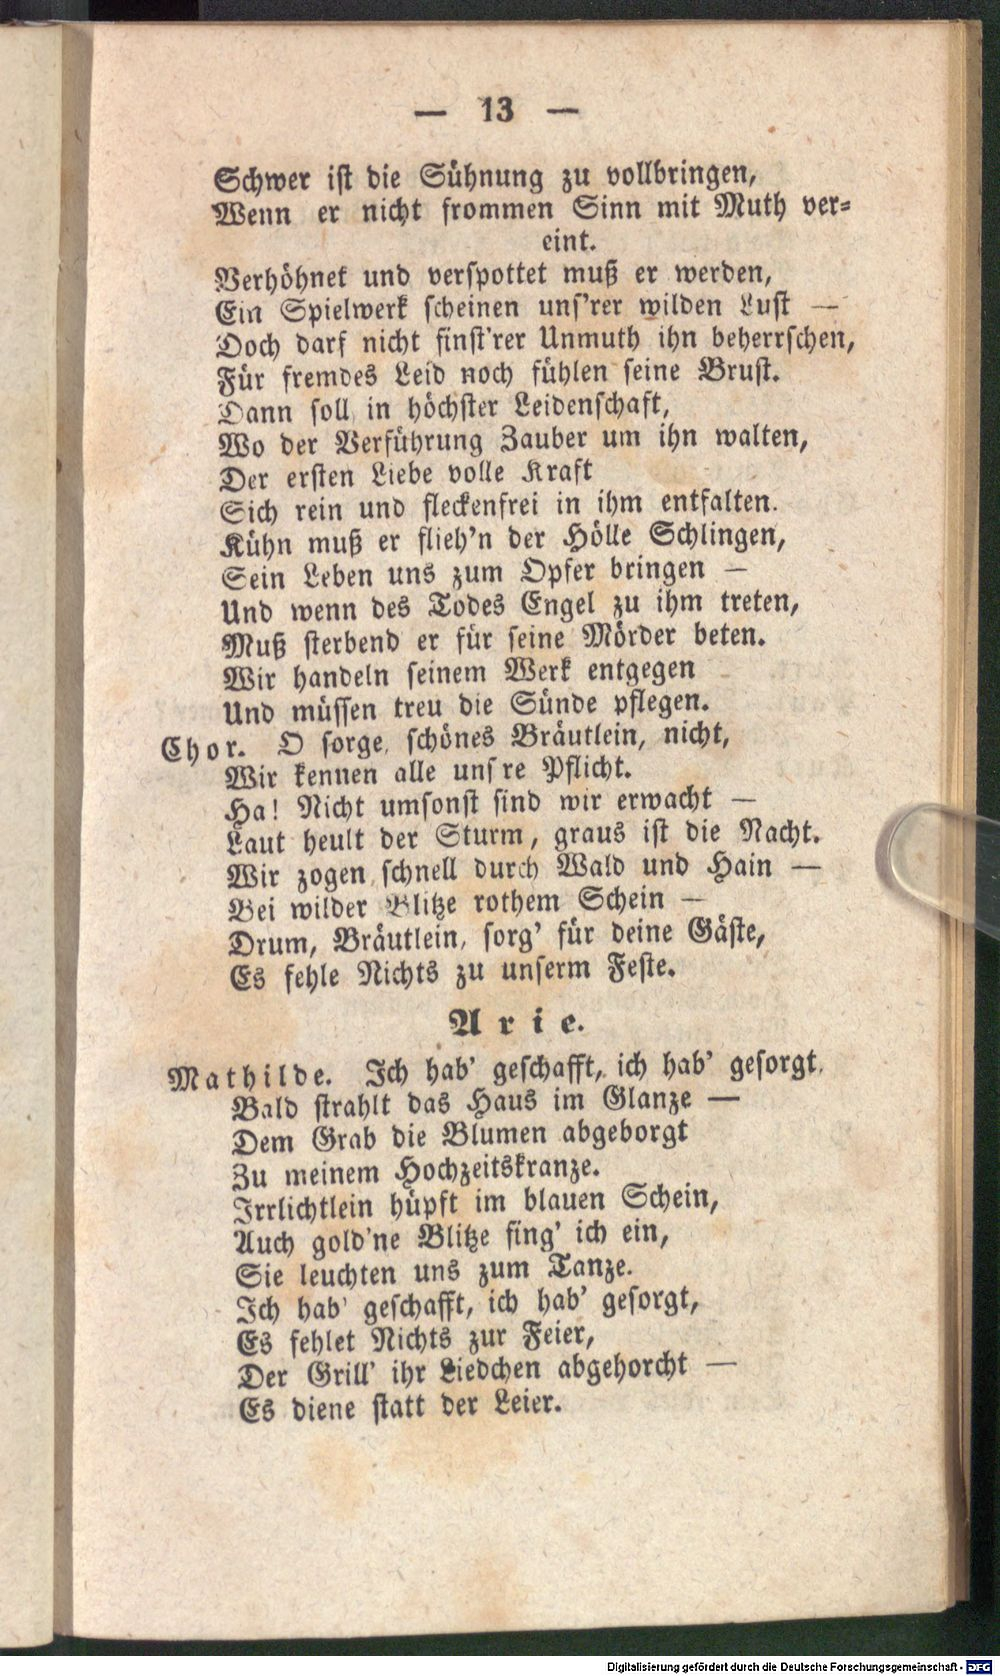 — 13 —
Schwer ist die Sühnung zu vollbringen,
Wenn er nicht frommen Sinn mit Muth ver-
eint.
Verhöhnet und verspottet muß er werden,
Ein Spielwerk scheinen uns'rer wilden Lust —
Doch darf nicht finst'rer Unmuth ihn beherrschen,
Für fremdes Leid noch fühlen seine Brust.
Dann soll in höchster Leidenschaft,
Wo der Verführung Zauber um ihn walten,
Der ersten Liebe volle Kraft
Sich rein und fleckenfrei in ihm entfalten.
Kühn muß er flieh'n der Hölle Schlingen,
Sein Leben uns zum Opfer bringen —
Und wenn des Todes Engel zu ihm treten,
Muß sterbend er für seine Mörder beten.
Wir handeln seinem Werk entgegen
Und müssen treu die Sünde pflegen.
Chor. O sorge, schönes Bräutlein, nicht,
Wir kennen alle uns're Pflicht.
Ha! Nicht umsonst sind wir erwacht —
Laut heult der Sturm, graus ist die Nacht.
Wir zogen schnell durch Wald und Hain —
Bei wilder Blitze rothem Schein —
Drum, Bräutlein, sorg' für deine Gäste,
Es fehle Nichts zu unserm Feste.
Arie.
Mathilde. Ich hab' geschafft, ich hab' gesorgt,
Bald strahlt das Haus im Glanze —
Dem Grab die Blumen abgeborgt
Zu meinem Hochzeitskranze.
Irrlichtlein hüpft im blauen Schein,
Auch gold'ne Blitze fing' ich ein,
Sie leuchten uns zum Tanze.
Ich hab' geschafft, ich hab' gesorgt,
Es fehlet Nichts zur Feier,
Der Grill' ihr Liedchen abgehorcht —
Es diene statt der Leier.
Digitalisierung gefördert durch die Deutsche Forschungsgemeinschaft - DFG